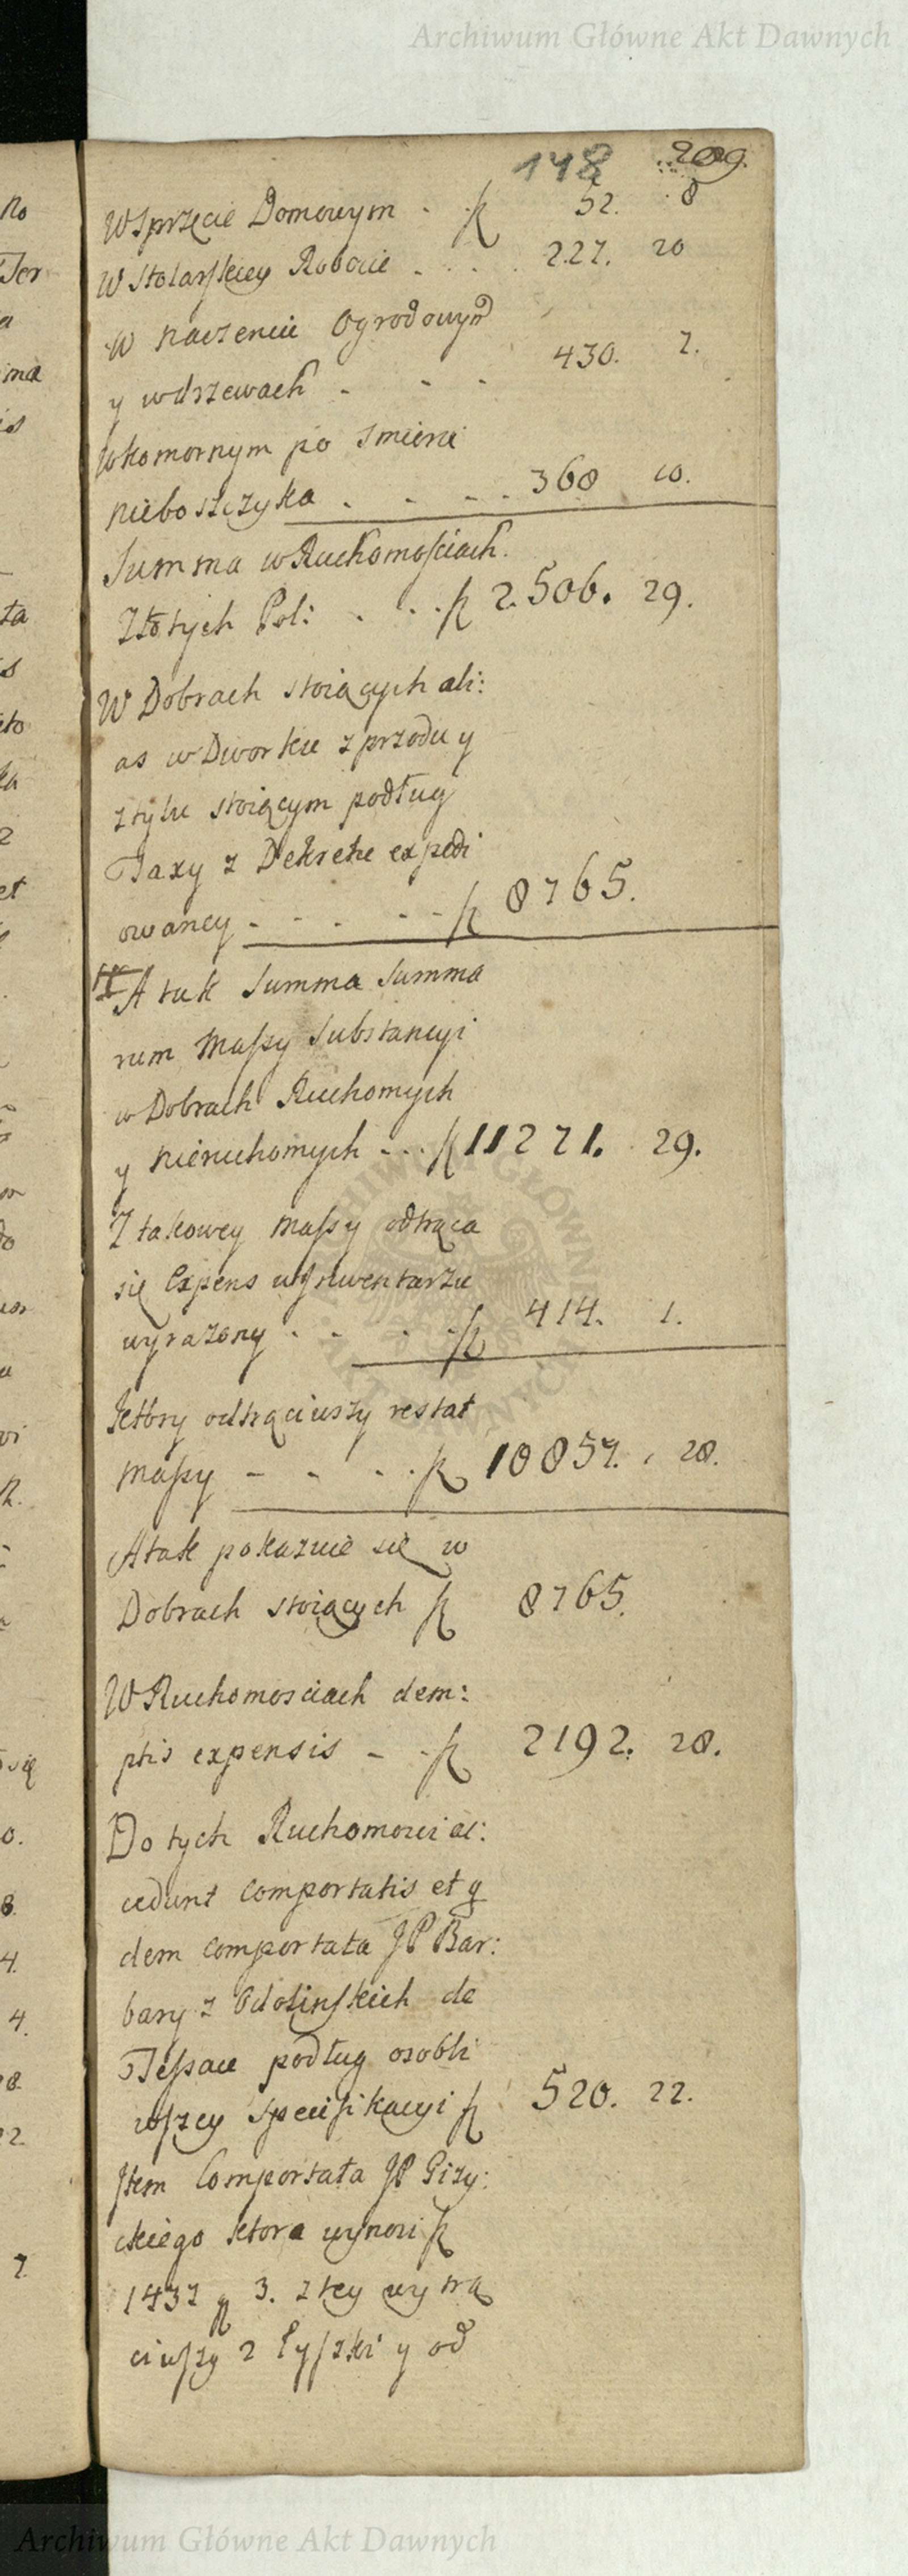 Archiwum Główne Akt Dawnych
148 209.
W Sprzęcie Domowym - fl 52. 8
W Stolarskiey Robocie - . . . 227. 20
W Naczeniu Ogrodowym
y w drzewach - - - 430. 7.
W komornym po Smierci
Nieboszczyka . - - . 368 10.
Summa w Ruchomościach.
Złotych Pol: . . . fl 2.506. 29.
W Dobrach stoiących ali:
as w Dworku z przodu y
z tyłu stoiącym podług
Taxy z Dekretu expedi
owaney - - . - - fl 8765.
A tak Summa Summa
rum Massy Substancyi
w Dobrach Ruchomych
y Nieruchomych - . . fl 11271. 29.
Z takowey Massy odtrąca
się Expens w Jnwentarzu
wyrażony . - . - fl 414. 1.
Ktory odtrąciwszy restat
Massy - - . . fl 10857. 28.
A tak pokazuie się w
Dobrach stoiących fl 8765.
W Ruchomosciach dem:
ptis expensis - - fl 2192. 28.
Do tych Ruchomosci ac:
cedunt comportatis et q
dem comportata JP Bar:
bary z Odolinskich de
Tessau podług osobli
wszey Specifikacyi fl 520. 22.
Jtem Comportata JP Gizy:
ckiego ktora wynosi fl
1437 g 3. z tey wytrą
ciwszy 2 Łyszki y od
Archiwum Główne Akt Dawnych